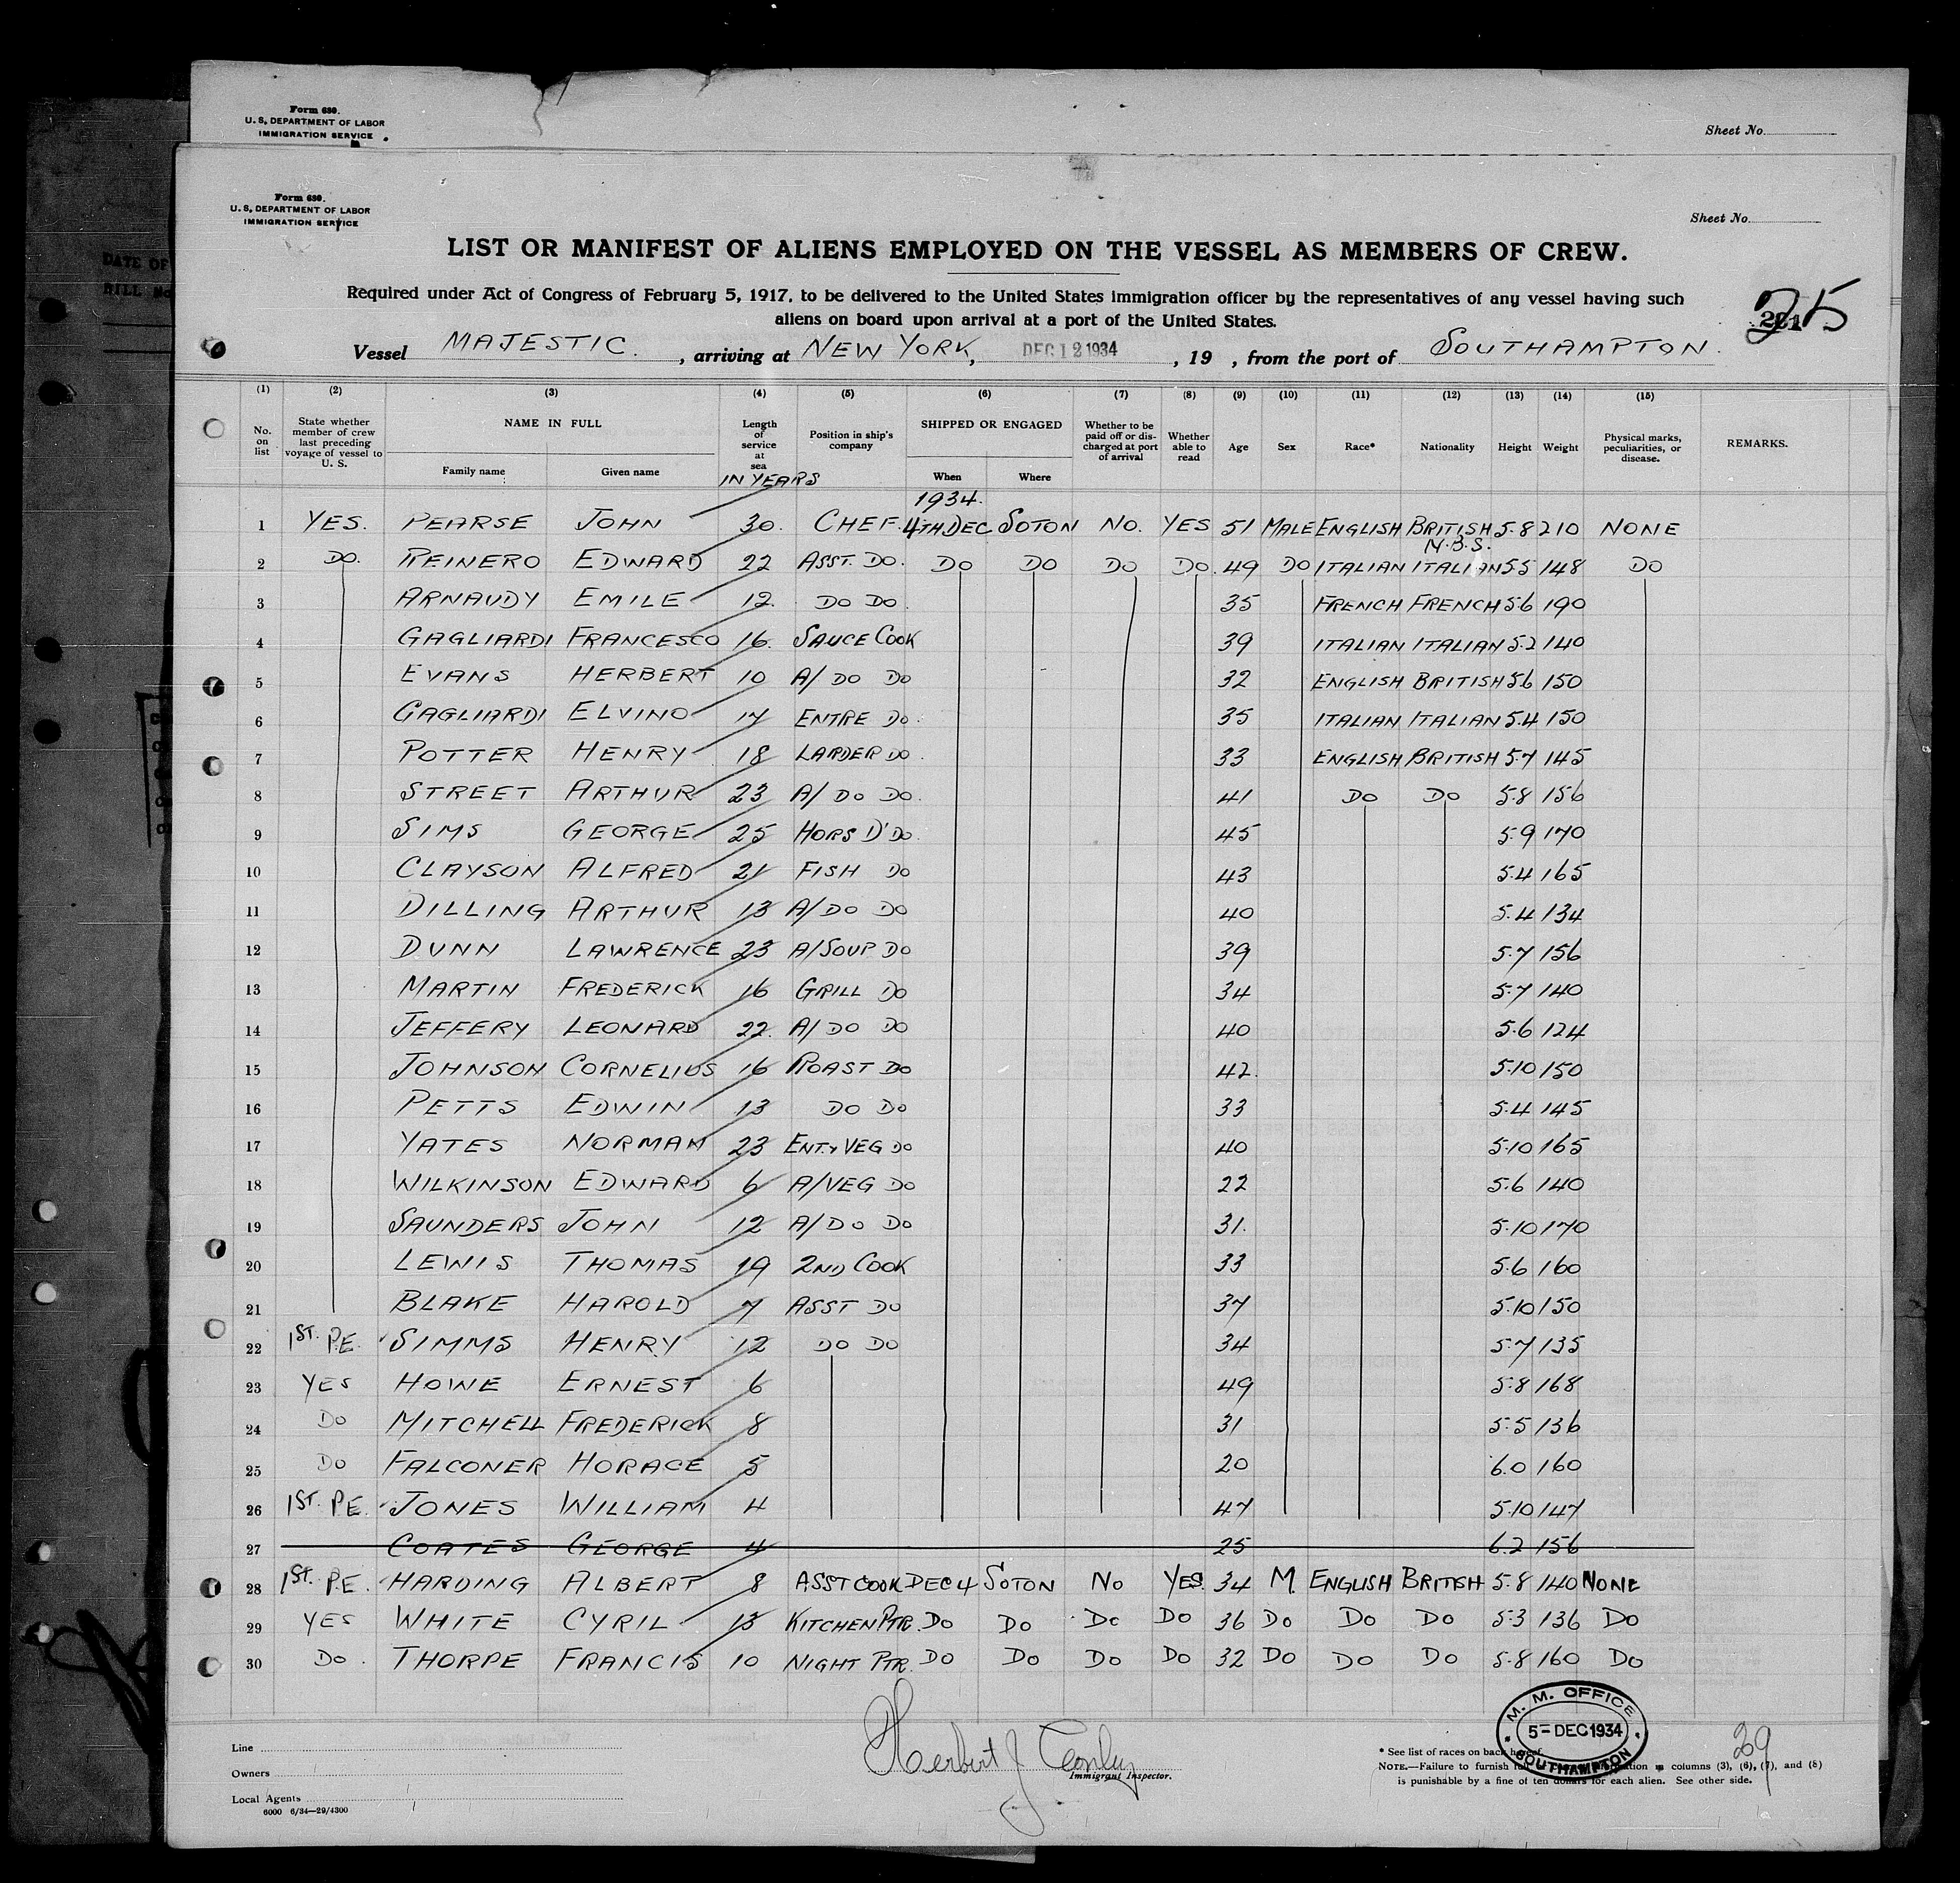 Form 680.
U. S. DEPARTMENT OF LABOR
IMMIGRATION SERVICE
Sheet No.
Form 680.
U. S. DEPARTMENT OF LABOR
IMMIGRATION SERVICE
Sheet No.
LIST OR MANIFEST OF ALIENS EMPLOYED ON THE VESSEL AS MEMBERS OF CREW.
Required under Act of Congress of February 5, 1917, to be delivered to the United States immigration officer by the representatives of any vessel having such
aliens on board upon arrival at a port of the United States.
25
Vessel MAJESTIC. , arriving at NEW YORK, DEC 12 1934 , 19 , from the port of SOUTHAMPTON.
(1) (2) (3) (4) (5) (6) (7) (8) (9) (10) (11) (12) (13) (14) (15)
No. on list State whether member of crew last preceding voyage of vessel to U. S. NAME IN FULL Family name Given name Length of service at sea IN YEARS Position in ship's company SHIPPED OR ENGAGED When Where Whether to be paid off or discharged at port of arrival Whether able to read Age Sex Race* Nationality Height Weight Physical marks, peculiarities, or disease. REMARKS.
1934.
1 YES. PEARSE JOHN 30. CHEF. 4TH.DEC SOTON NO. YES 51 MALE ENGLISH BRITISH 5.8 210 NONE
N.B.S.
2 DO. REINERO EDWARD 22 ASST. DO. DO DO DO DO. 49 DO ITALIAN ITALIAN 5.5 148 DO
3 ARNAUDY EMILE 12. DO DO. 35 FRENCH FRENCH 5.6 190
4 GAGLIARDI FRANCESCO 16. SAUCE COOK 39 ITALIAN ITALIAN 5.2 140
5 EVANS HERBERT 10 A/ DO DO 32 ENGLISH BRITISH 5.6 150
6 GAGLIARDI ELVINO 17 ENTRE DO. 35 ITALIAN ITALIAN 5.4 150
7 POTTER HENRY 18 LARDER DO. 33 ENGLISH BRITISH 5.7 145
8 STREET ARTHUR 23 A/ DO DO. 41 DO DO 5.8 156
9 SIMS GEORGE 25 HORS D' DO. 45 5.9 170
10 CLAYSON ALFRED 21 FISH DO 43 5.4 165
11 DILLING ARTHUR 13 A/ DO DO 40 5.4 134
12 DUNN LAWRENCE 23 A/SOUP DO 39 5.7 156
13 MARTIN FREDERICK 16 GRILL DO 34 5.7 140
14 JEFFERY LEONARD 22. A/ DO DO 40 5.6 124
15 JOHNSON CORNELIUS 16 ROAST DO 42. 5.10 150
16 PETTS EDWIN 13 DO DO 33 5.4 145
17 YATES NORMAN 23 ENT.Y VEG DO 40 5.10 165
18 WILKINSON EDWARD 6 A/VEG DO 22 5.6 140
19 SAUNDERS JOHN 12 A/DO DO 31. 5.10 170
20 LEWIS THOMAS 19 2ND COOK 33 5.6 160
21 BLAKE HAROLD 7 ASST DO 37 5.10 150
22 1ST. P.E. SIMMS HENRY 12 DO DO 34 5.7 135
23 YES HOWE ERNEST 6 49 5.8 168
24 DO MITCHELL FREDERICK 8 31 5.5 136
25 DO FALCONER HORACE 5 20 6.0 160
26 1ST. P.E. JONES WILLIAM 4 47 5.10 147
27 COATES GEORGE 4 25 6.2 156
28 1ST. P.E. HARDING ALBERT 8 ASST COOK DEC 4 SOTON NO YES. 34 M. ENGLISH BRITISH 5.8 140 NONE
29 YES WHITE CYRIL 13 KITCHEN PTR. DO DO DO DO 36 DO DO DO 5.3 136 DO
30 DO. THORPE FRANCIS 10 NIGHT PTR. DO DO DO DO 32 DO DO DO 5.8 160 DO
Line
Owners
Local Agents
6000 6/34—29/4300
Immigrant Inspector.
M. M. OFFICE
5 - DEC 1934
SOUTHAMPTON
29
* See list of races on back
NOTE.—Failure to furnish columns (3), (6), (7), and (8)
is punishable by a fine of ten dollars for each alien. See other side.